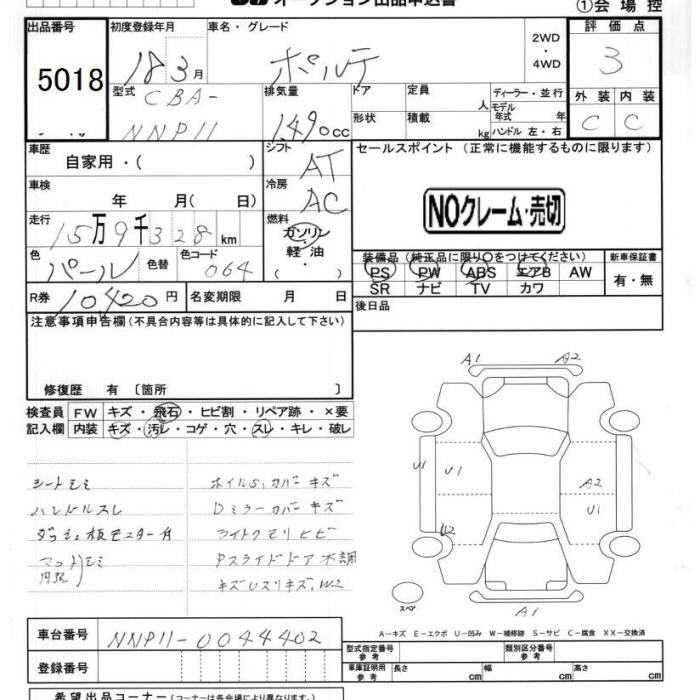 オークション出品申込書
①会場控
出品番号 初度登録年月 車名・グレード 2WD ・ 4WD 評価点
5018 18 3月 ポルテ 3
型式 CBA- NNP11 排気量 1490cc ドア 定員 人 ディーラー・並行 外装 内装
形状 積載 kg モデル年式 年 ハンドル 左・右 C C
車歴 自家用・( ) シフト AT セールスポイント (正常に機能するものに限ります)
車検 年 月( 日) 冷房 AC
NOクレーム・売切
走行 15万9千328km 燃料 ガソリン・軽油・( )
色 パール 色替 色コード 064
装備品 (純正品に限り○をつけてください) 新車保証書
PS PW ABS エアB AW 有・無
SR ナビ TV カワ
R券 10420円 名変期限 月 日 後日品
注意事項申告欄 (不具合内容等は具体的に記入して下さい)
修復歴 有 〔箇所 〕
検査員 FW キズ・飛石・ヒビ割・リペア跡・×要
記入欄 内装 キズ・汚レ・コゲ・穴・スレ・キレ・破レ
シートシミ ホイルS,カバーキズ
ハンドルスレ Dミラーカバーキズ
ダッシュ板モニター台 ライトクモリヒビ
マットシミ Pスライドドア不調
キズUスリキズ,W2
A1 A2
U1 U1 A2
U1
W2
スペア
A1
A－キズ E－エクボ U－凹み W－補修跡 S－サビ C－腐食 XX－交換済
車台番号 NNP11-0044402
型式指定番号 参考 類別区分番号 参考
登録番号 車庫証明用 参考 長さ cm 幅 cm 高さ cm
希望出品コーナー (コーナーは各会場により異なります。)